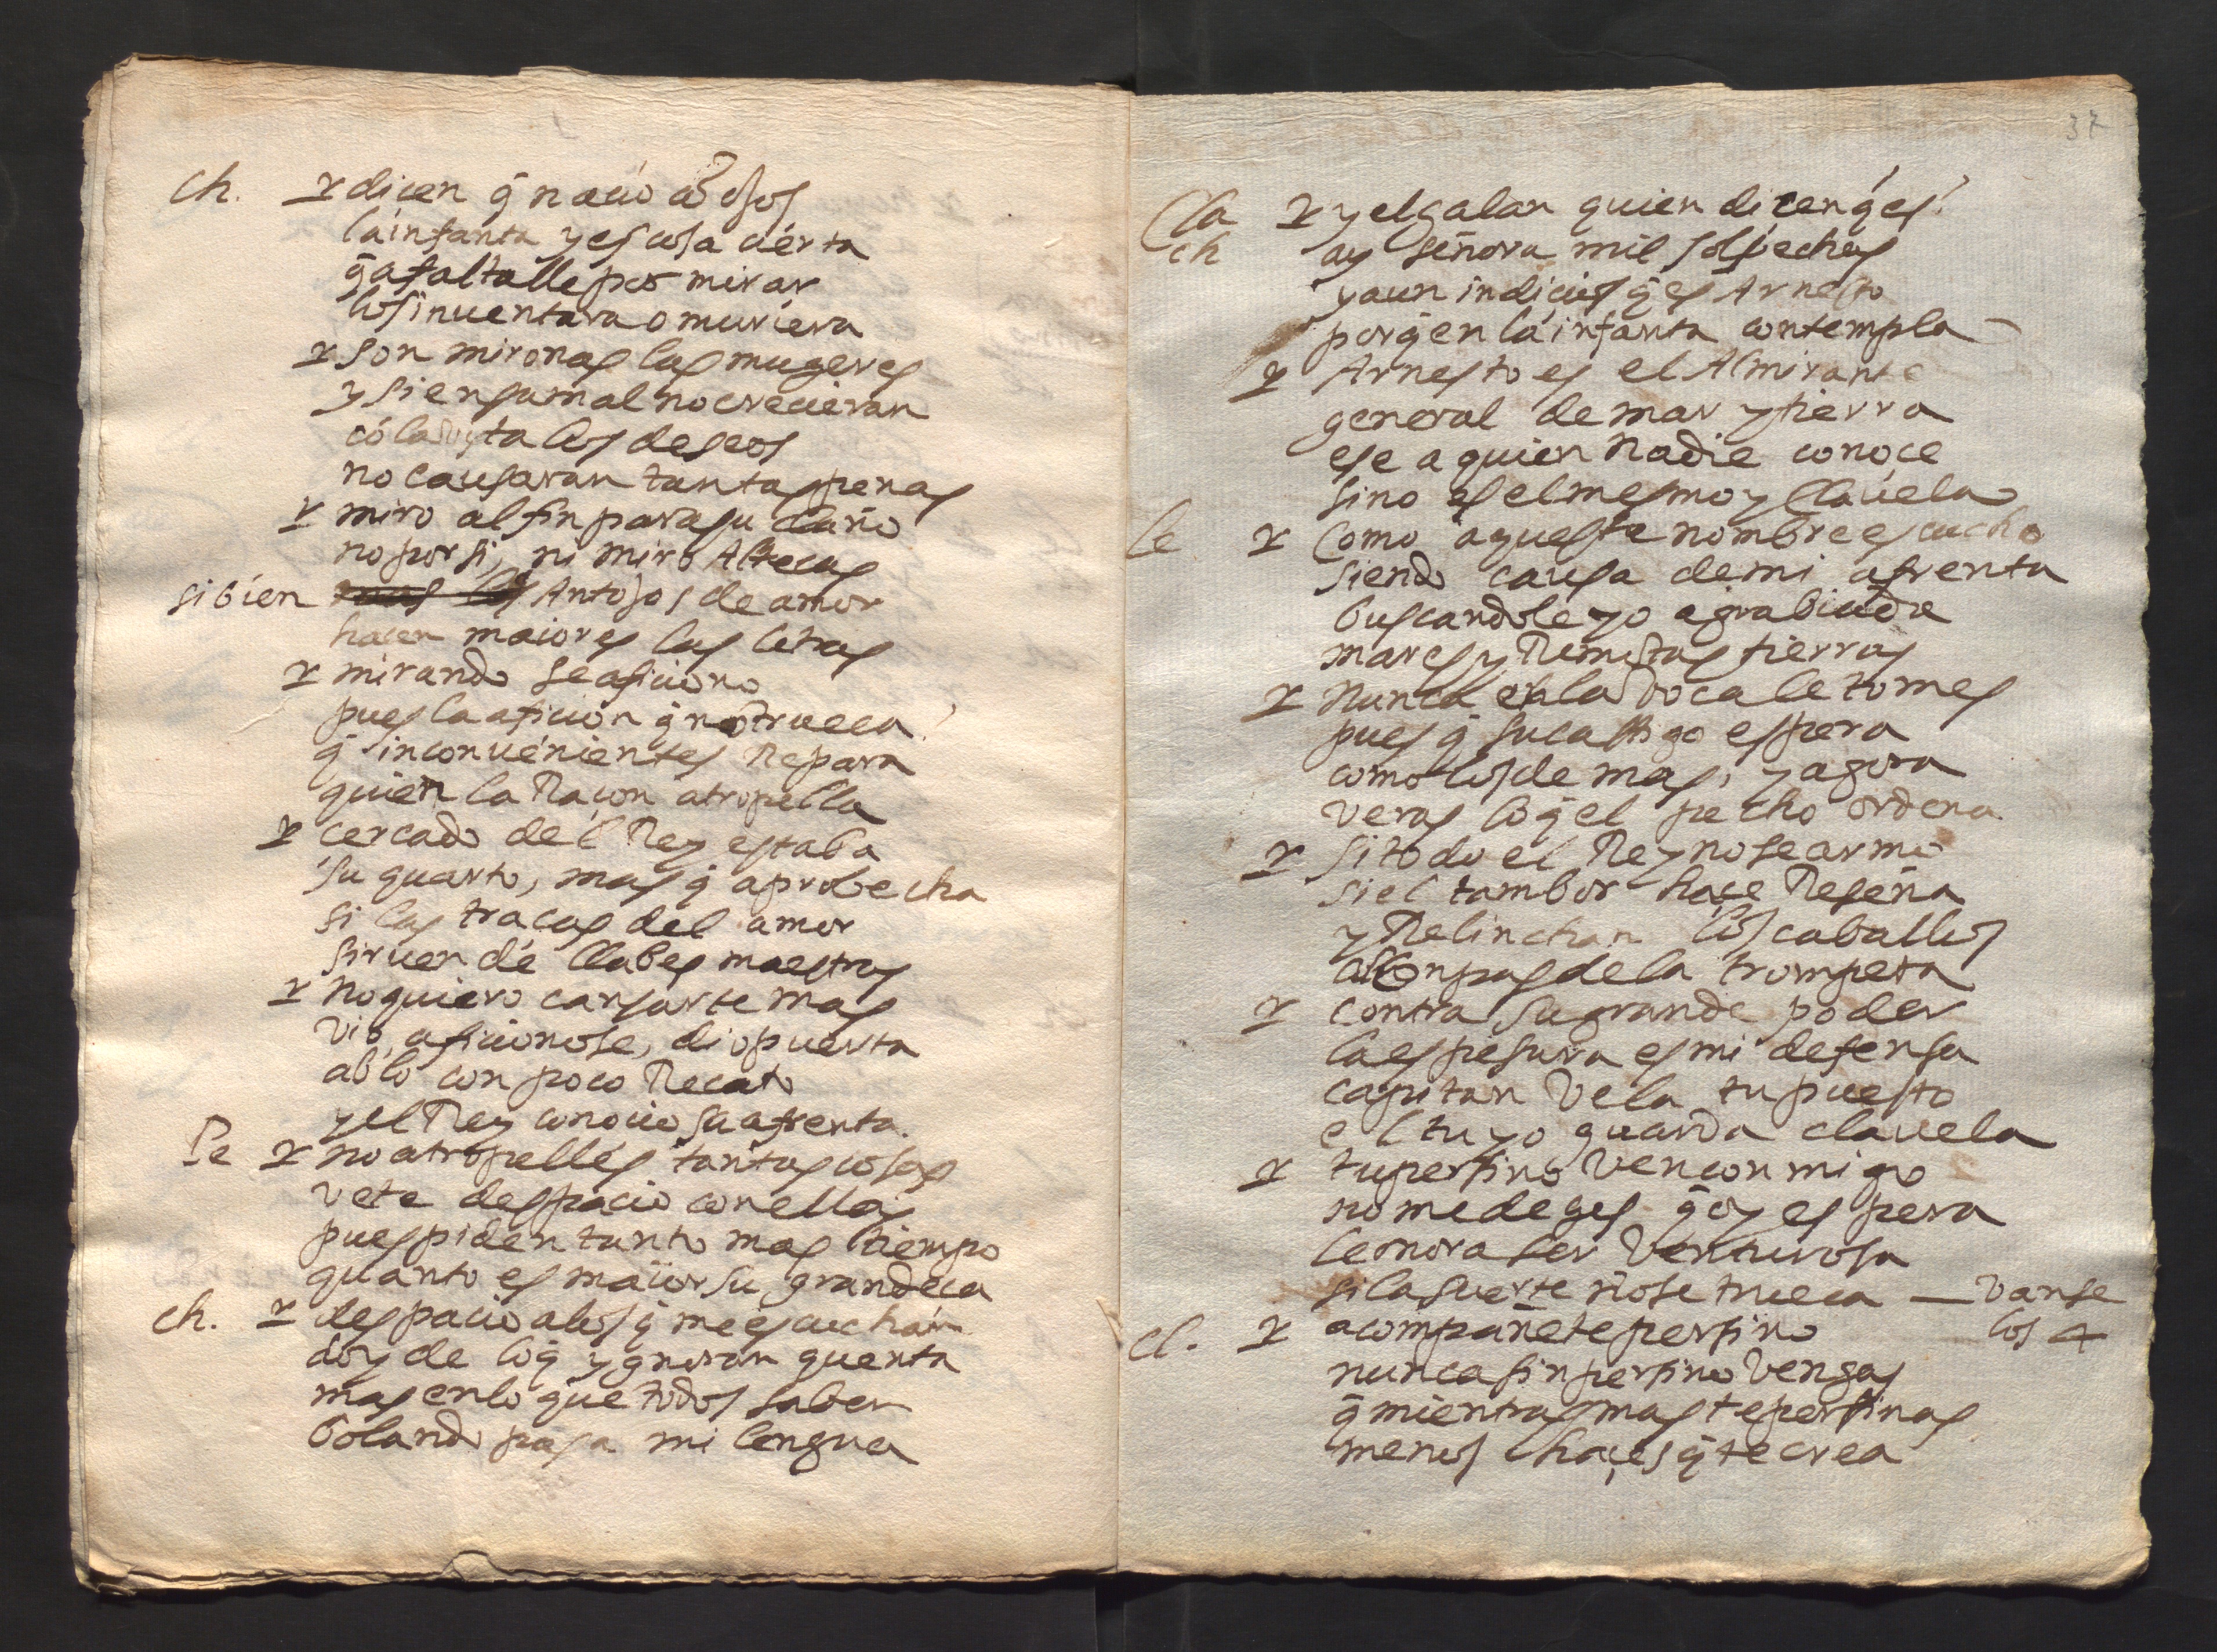 ch. dicen q̄ nacio cō ojos
la infanta y es cosa cierta
q̄ a faltalle por mirar
los inuentara o muriera
son mironas las mugeres
y si en su mal no crecieran
cō la vista los deseos
no causaran tantas penas
miro al fin para su daño
no por si, ni miro Alteças
si bien Antojos de amor
hacen maiores las letras
mirando se aficiono
pues la aficion q̄ no trueca?
q̄ inconuenientes Repara
quien la Raçon atropella
cercado del Rey estaba
su quarto, mas q̄ aprobecha
si las traças del amor
siruen de llabes maestras
no quiero cansarte mas
vio, aficionose, dio puerta
ablo con poco Recato
y el Rey conocio su afrenta.
Le no atropelles tantas cosas
vete despacio con ellas
pues piden tanto mas tiempo
quanto es maior su grandeça
ch. despacio a los q̄ me escuchan
doy de lo q̄ ygnoran quenta
mas en lo que todos saben
bolando pasa mi lengua
37
Cla y el galan quien dicen q̄ es?
ch ay señora mil sospechas
y aun indicios q̄ es Arnesto
porq̄ en la infanta contempla
Arnesto es el Almirante
general de mar y tierra
ese a quien nadie conoce
sino es el mesmo y Clauela
Le Como aqueste nombre escucho
siendo causa de mi afrenta
buscandole yo agrabiada
mares y Remotas tierras
Nunca en la boca le tomes
pues q̄ su castigo espera
como los demas, y agora
veras lo q̄ el pecho ordena
si todo el Reyno se armo
si el tambor haçe Reseña
y Relinchan los caballos
al conpas de la trompeta
contra su grande poder
la espesura es mi defensa
capitan Vela tu puesto
el tuyo guarda clauela
tu persino ven conmigo
no me deges q̄ oy espera
leonora ser venturosa
si la suerte no se trueca — vanse
los 4
Cl. acompañete persino
nunca sin persino vengas
q̄ mientras mas te persinas
menos haçes q̄ te crea